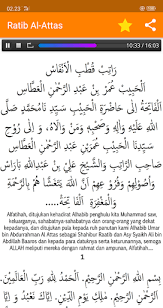 02.23
Ratib Al-Attas
10:33 / 16:03
رَاتِبُ قُطْبِ الْأَنْفَاسِ
الْحَبِيْبِ عُمَرَ بْنِ عَبْدِ الرَّحْمٰنِ الْعَطَّاسِ
الْفَاتِحَةُ اِلَى حَضْرَةِ الْحَبِيْبِ سَيِّدِ نَا مُحَمَّدٍ صَلَّى
اللهُ عَلَيْهِ وَآلِهِ وَصَحْبِهِ وَمَنْ وَالَاهُ، وَ اِلَى رُوْحِ
سَيِّدِنَا الْحَبِيْبِ عُمَرَ بْنِ عَبْدِ الرَّحْمٰنِ الْعَطَّاسِ
وَأُصُوْلِهِمْ وَفُرُوْعِهِمْ أَنَّ اللهَ يَتَغَشَّاهُمْ بِالرَّحْمَةِ
Alfatihah, ditujukan kehadirat Alhabib penghulu kita Muhammad saw,
keluarganya, sahabatnya-sahabatnya dan orang-orang yang dekat
kepadanya, dan ditujukan pula kepada ruh panutan kami Alhabib Umar
bin Abdurrahman Al Attas sebagai Shahibur Raatib dan Asy Syaikh Ali bin
Abdillah Baaras dan kepada para datuknya serta keturunannya, semoga
ALLAH meliputi mereka dengan rahmat dan ampunan, Alfatihah...
1
بِسْمِ اللهِ الرَّحْمٰنِ الرَّحِيْمِ. الْحَمْدُ لِلّٰهِ رَبِّ الْعَالَمِيْنَ.